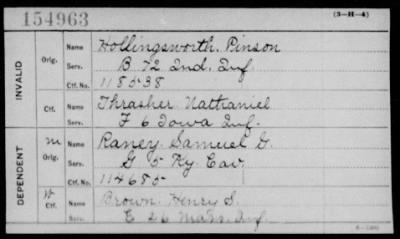 154963
(3-H-4)
INVALID
Orig.
Name Hollingsworth. Pinson
Serv. B 72 Ind. Inf.
Ctf. No. 118538
Ctf.
Name Thrasher Nathaniel
Serv. F 6 Iowa Inf.
DEPENDENT
m
Orig.
Name Raney Samuel G.
Serv. G 5 Ky Cav.
Ctf. No. 114685
W
Ctf.
Name Brown. Henry S.
Serv. E 26 Mass. Inf.